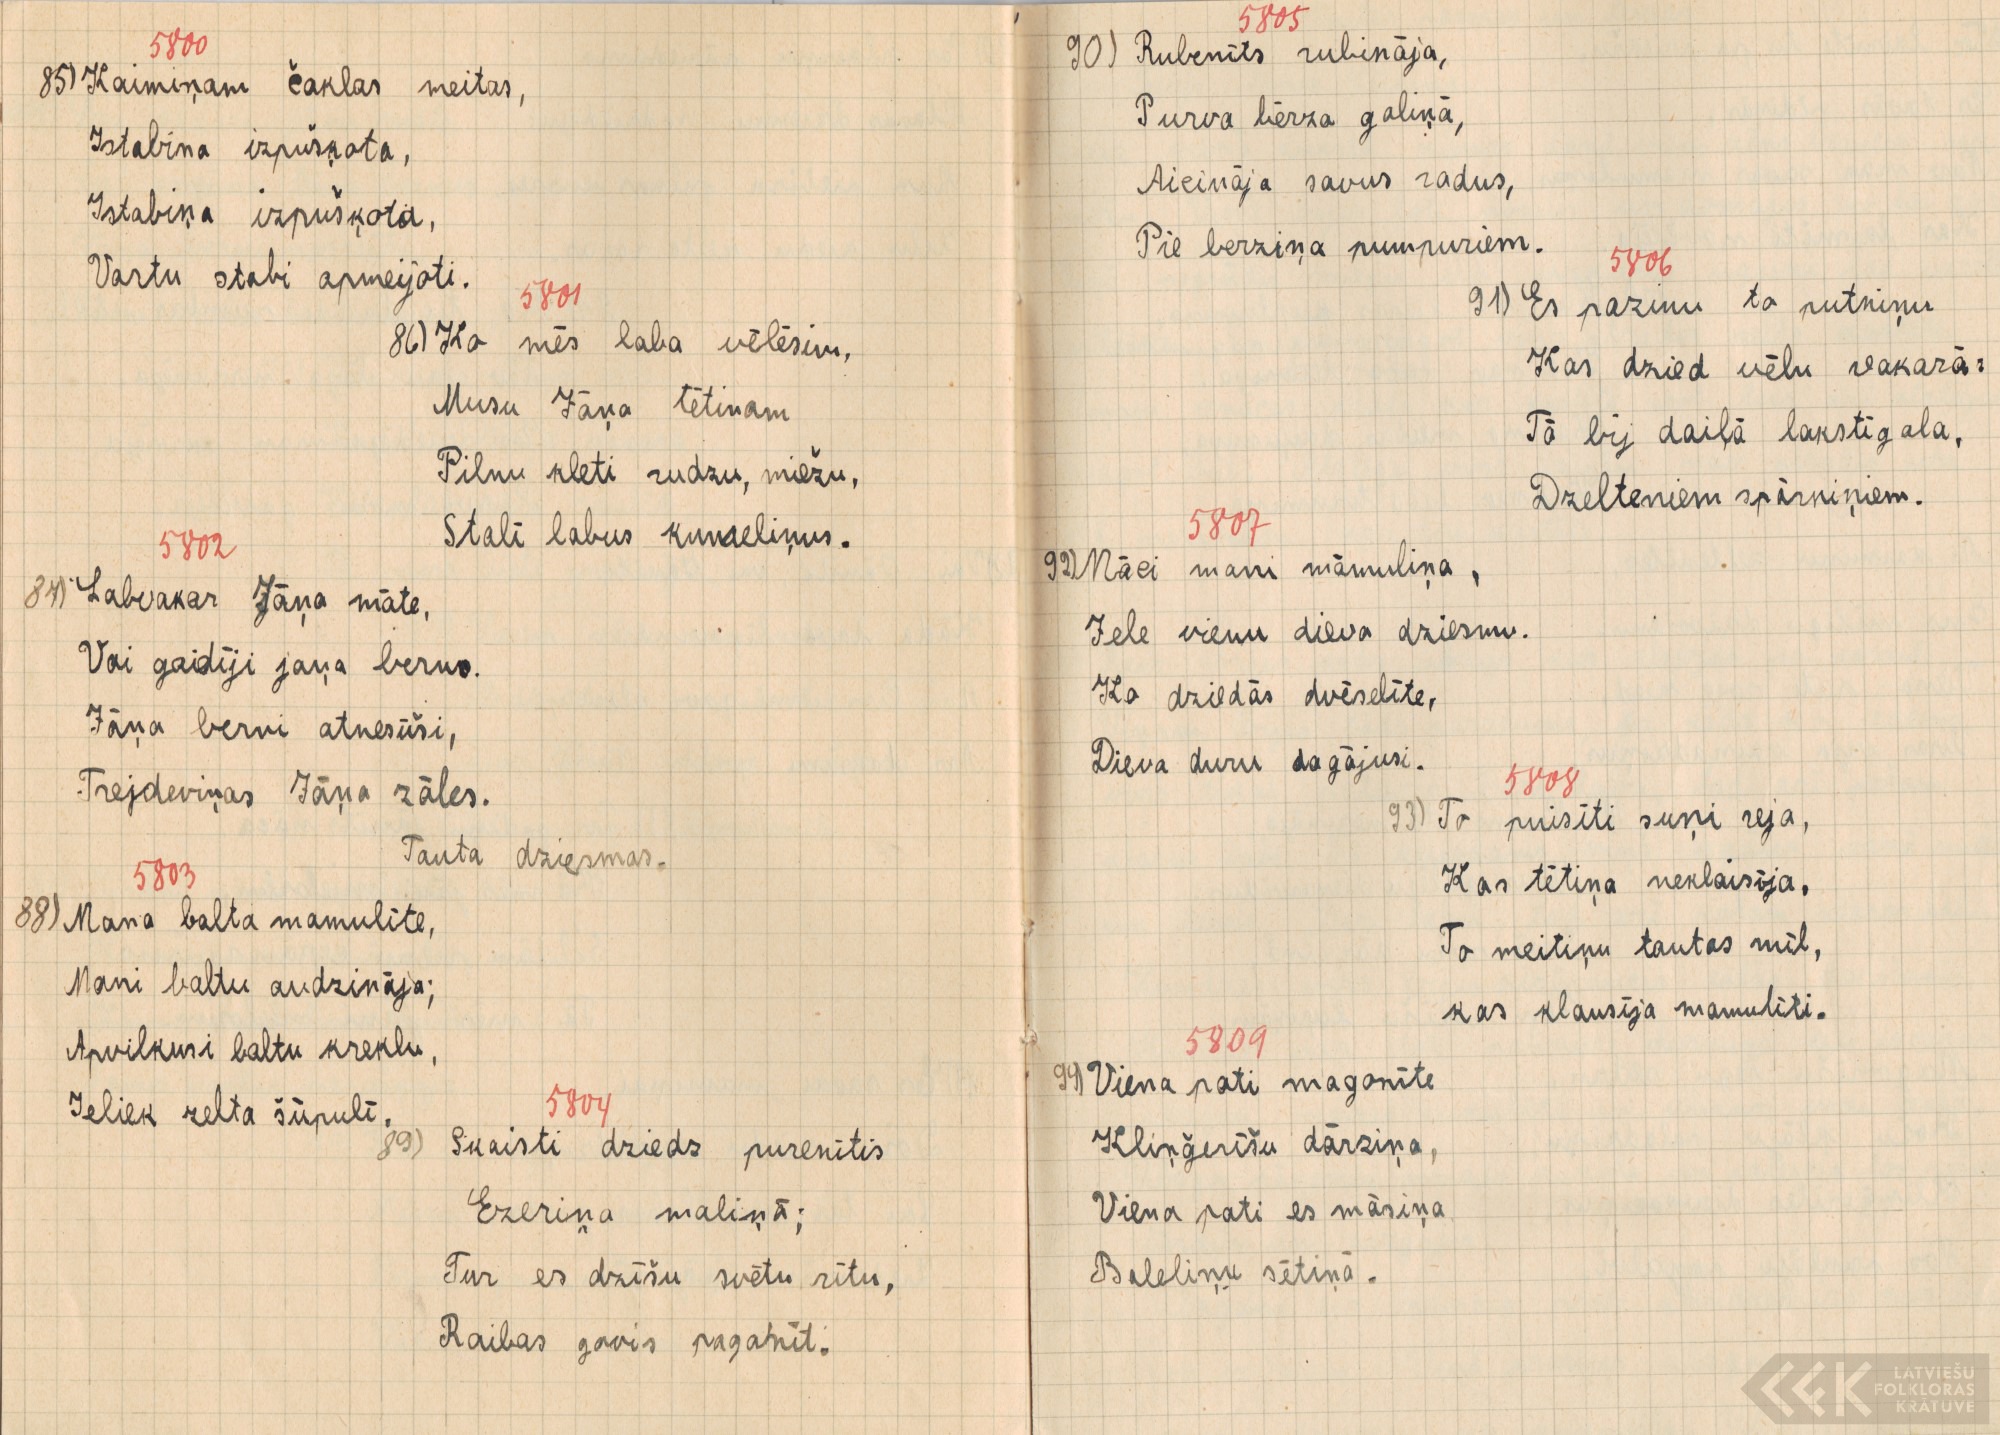 5800
85) Kaimiņam čaklas meitas,
Istabina izpušķota,
Istabiņa izpušķota,
Vartu stabi apmeijoti.
5801
86) Ko mēs laba vēlēsim,
Musu Jāņa tētinam
Pilnu kleti rudzu, miežu,
Stalī labus kumeliņus.
5802
87) Labvakar Jāņa māte,
Vai gaidīji jaņa bernus.
Jāņa berni atnesūši,
Trejdeviņas Jāņa zāles.
Tauta dziesmas.
5803
88) Mana balta mamulīte,
Mani baltu audzināja;
Apvilkusi baltu kreklu,
Ieliek zelta šūpulī.
5804
89) Skaisti dzieds purenītis
Ezeriņa maliņā;
Tur es dzīšu svētu rītu,
Raibas govis paganīt.
5805
90) Rubenīts rubināja,
Purva bērza galiņā,
Aicināja savus radus,
Pie berziņa pumpuriem.
5806
91) Es pazinu to putniņu
Kas dzied vēlu vakarā:
Tā bij daiļā lakstīgala,
Dzelteniem spārniņiem.
5807
92) Māci mani māmuliņa,
Jele vienu dieva dziesmu.
Ko dziedās dvēselīte,
Dieva duru dagājusi.
5808
93) To puisīti suņi reja,
Kas tētiņa neklausīja.
To meitiņu tautas mīl,
kas klausīja mamulīti.
5809
94) Viena pati magonīte
Kliņģerīšu dārziņa,
Viena pati es māsiņa
Baleliņu sētiņā.
LATVIEŠU
FOLKLORAS
KRĀTUVE